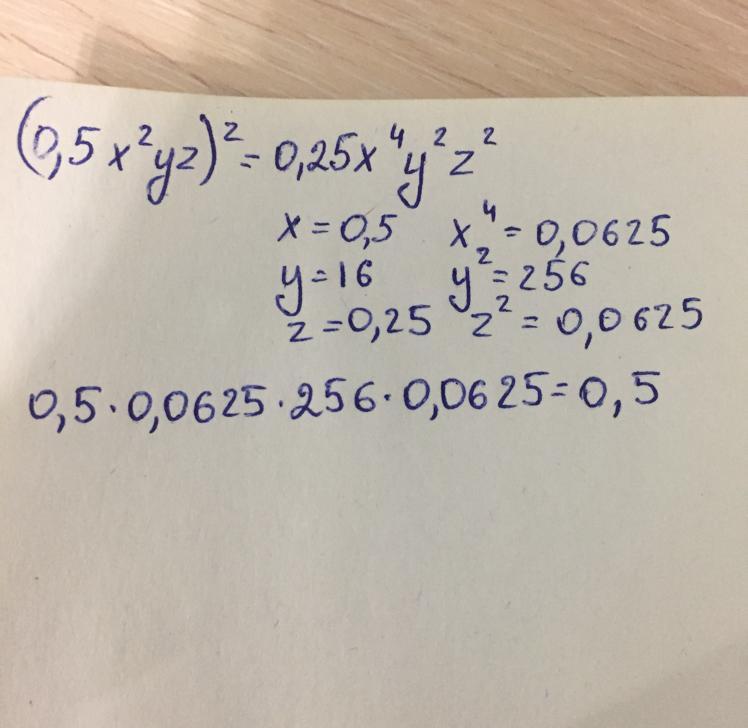 (0,5x²yz)² = 0,25x⁴y²z²
x = 0,5 x⁴ = 0,0625
y = 16 y² = 256
z = 0,25 z² = 0,0625
0,5 · 0,0625 · 256 · 0,0625 = 0,5